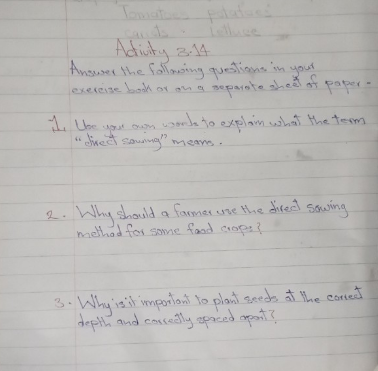 Tomatoes potatoes
carrots lettuce
Activity 3.14
Answer the following questions in your
exercise book or on a separate sheet of paper.
1. Use your own words to explain what the term
"direct sowing" means.
2. Why should a farmer use the direct sowing
method for some food crops?
3. Why is it important to plant seeds at the correct
depth and correctly spaced apart?